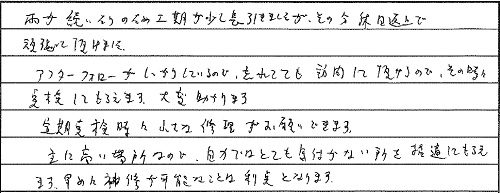 雨が続いたりのため工期が少し長引きましたが、その分休日返上で
頑張って頂けました。
アフターフォローがしっかりしているので、忘れてても訪問して頂けるので、その時々
点検してもらえます。大変助かります
定期点検時に小さな修理がお願いできます。
主に高い場所なので、自力ではとても気付かない所を格適にもらえ
ます。早めに補修が可能なことは利点となります。